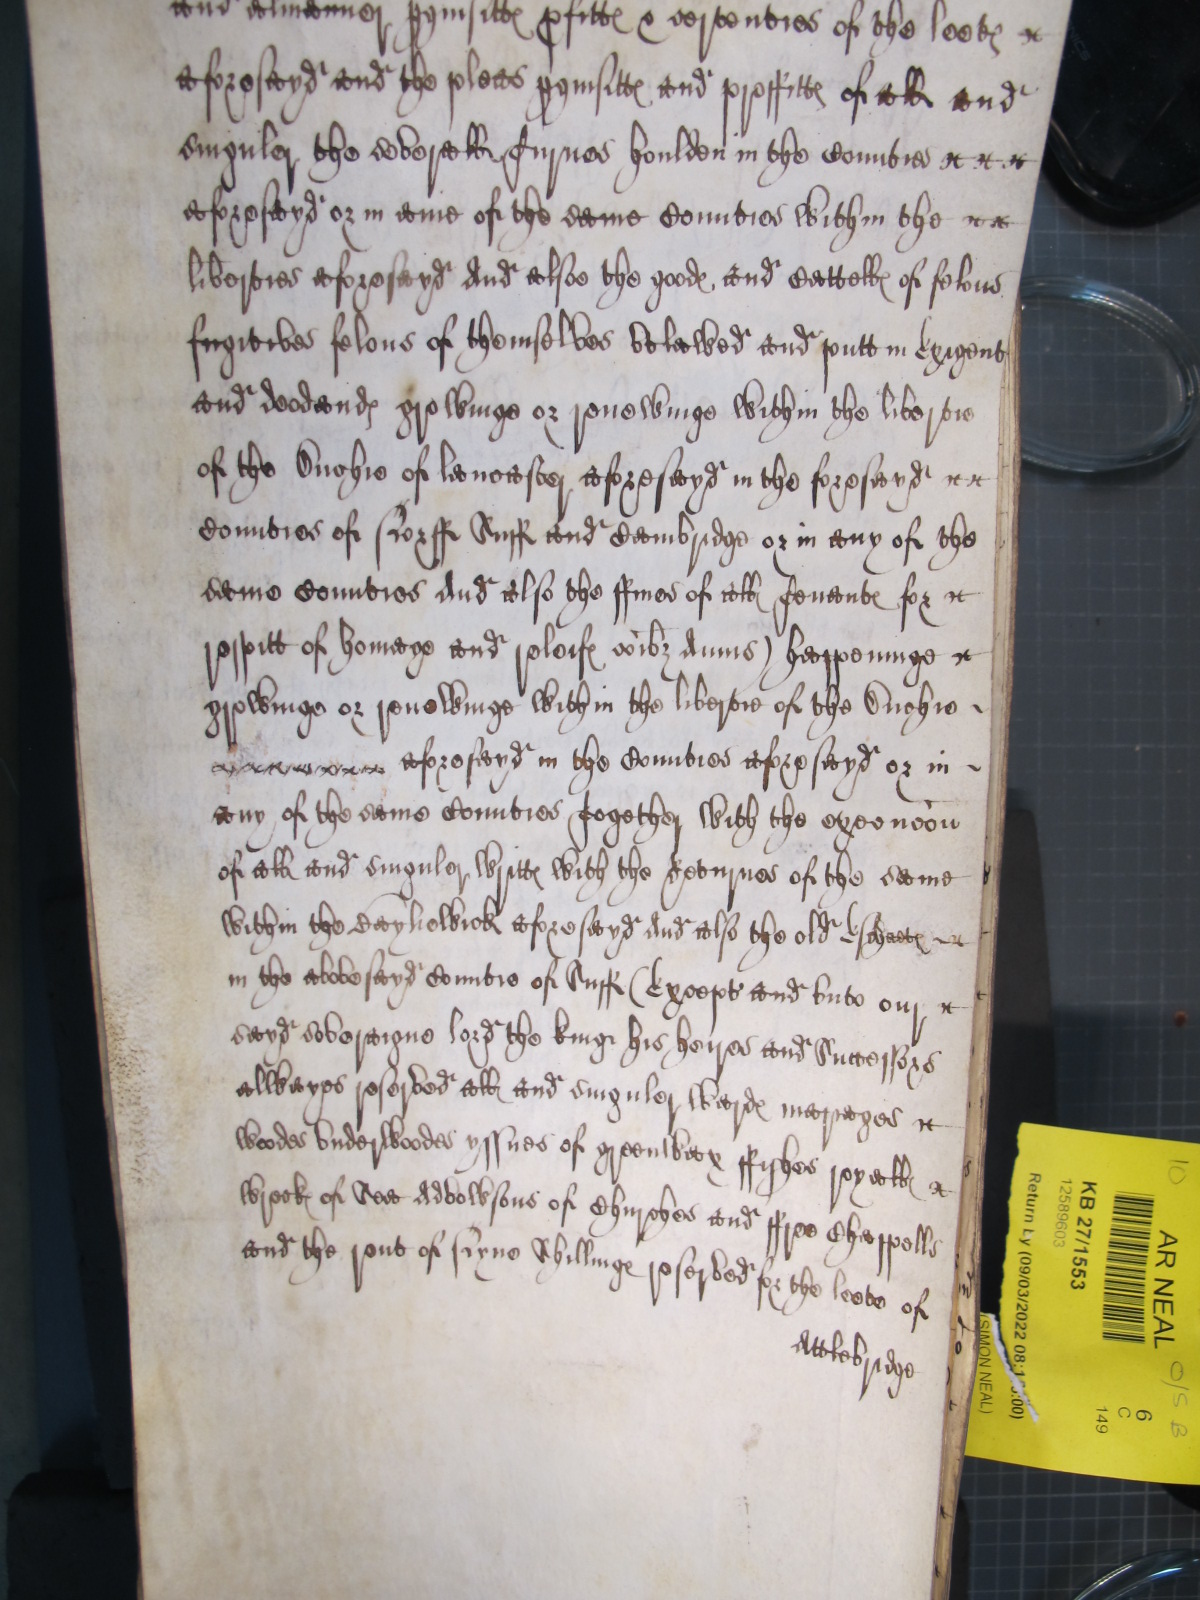 and Amerciamentes pquisitte pfitte & certenties of the leete
aforesayd and the pleas pquisitte and proffitte of all and
singuler the severall Turnes houlden in the Counties
aforesayd or in anie of the same Counties within the
liberties aforesayd And alsoe the goode and Cattelle of felons
fugitives felons of themselves vtlawed and putt in Exigent
and deodande growinge or renewinge within the libertie
of the Duchie of lancaster aforesayd in the foresayd
Counties of Norff Suff and Cambridge or in any of the
same Counties And also the ffines of all Tenante for
respitt of homage and releife (vibz Annis) happeninge
growinge or renewinge within the libertie of the Duchie
aforesayd in the Counties aforesayd or in
any of the same Counties Together with the execucon
of all and singuler writte with the Returnes of the same
within the Bayliewick aforesayd And also the old Escheate
in the abovesayd Countie of Suff (Except and vnto our
sayd soveraigne lord the kinge his heires and Successors
allwayes reserved all and singuler warde mariages
woodes vnderwoodes yssues of greenwax ffishes royall
wreck of Sea Advowsons of Churches and ffree Chappells
and the rent of sixe Shillinge reserved for the leete of
Attlebridge
AR NEAL
KB 27/1553
12589603
Return Ly (09/03/2022 08:1 :00)
(SIMON NEAL)
6
C
149
10
O/S B